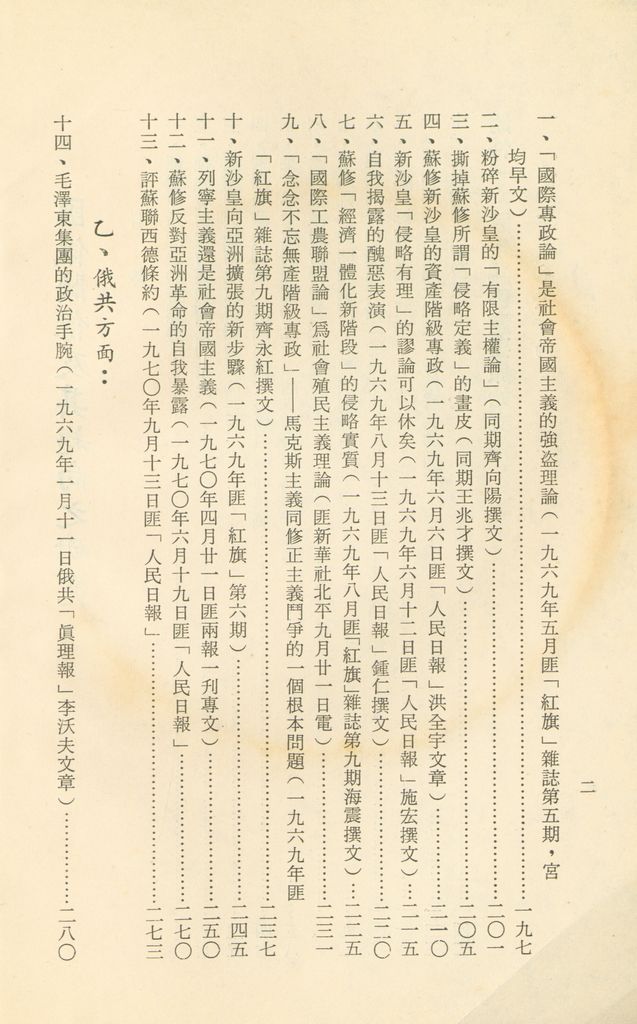 二
一、「國際專政論」是社會帝國主義的強盜理論（一九六九年五月匪「紅旗」雜誌第五期，宮
均早文）…………一九七
二、粉碎新沙皇的「有限主權論」（同期齊向陽撰文）…………二〇一
三、撕掉蘇修所謂「侵略定義」的畫皮（同期王兆才撰文）…………二〇五
四、蘇修新沙皇的資產階級專政（一九六九年六月六日匪「人民日報」洪全宇文章）…………二一〇
五、新沙皇「侵略有理」的謬論可以休矣（一九六九年六月十二日匪「人民日報」施宏撰文）…………二一五
六、自我揭露的醜惡表演（一九六九年八月十三日匪「人民日報」鍾仁撰文）…………二二〇
七、蘇修「經濟一體化新階段」的侵略實質（一九六九年八月匪「紅旗」雜誌第九期海震撰文）…………二二五
八、「國際工農聯盟論」為社會殖民主義理論（匪新華社北平九月廿一日電）…………二三一
九、「念念不忘無產階級專政」——馬克斯主義同修正主義鬥爭的一個根本問題（一九六九年匪
「紅旗」雜誌第九期齊永紅撰文）…………二三七
十、新沙皇向亞洲擴張的新步驟（一九六九年匪「紅旗」第六期）…………二四五
十一、列寧主義還是社會帝國主義（一九七〇年四月廿一日匪兩報一刋專文）…………二五〇
十二、蘇修反對亞洲革命的自我暴露（一九七〇年六月十九日匪「人民日報」…………二七〇
十三、評蘇聯西德條約（一九七〇年九月十三日匪「人民日報」…………二七三
乙、俄共方面：
十四、毛澤東集團的政治手腕（一九六九年一月十一日俄共「眞理報」李沃夫文章）…………二八〇